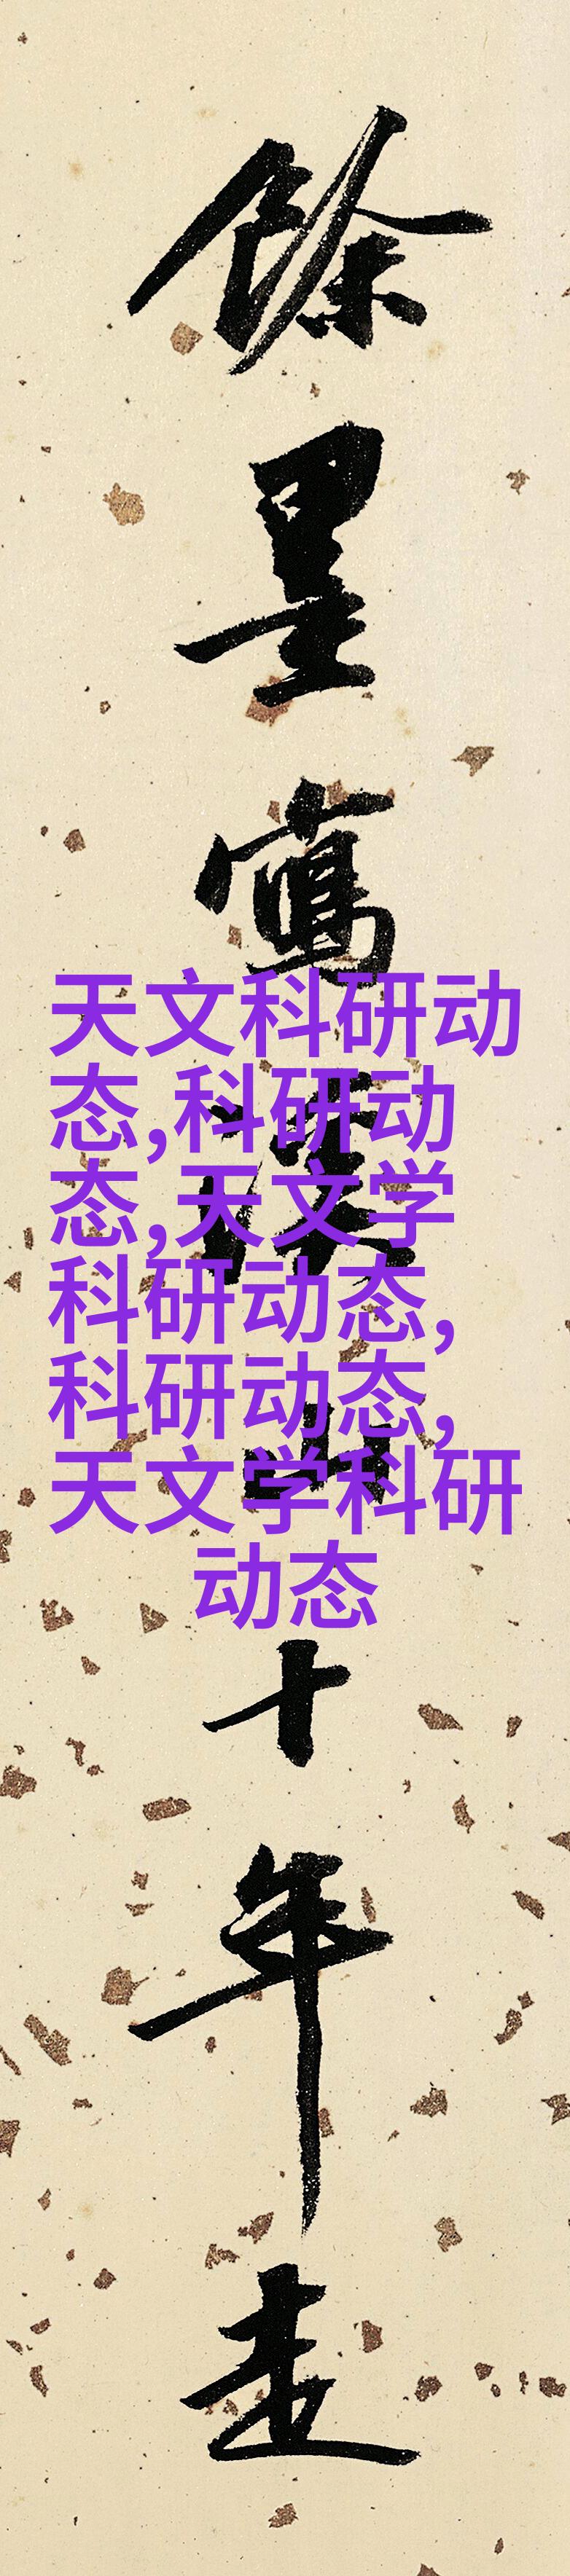 餘墨寫山十年走
天文科研动
态,科研动
态,天文学
科研动态,
科研动态,
天文学科研
动态